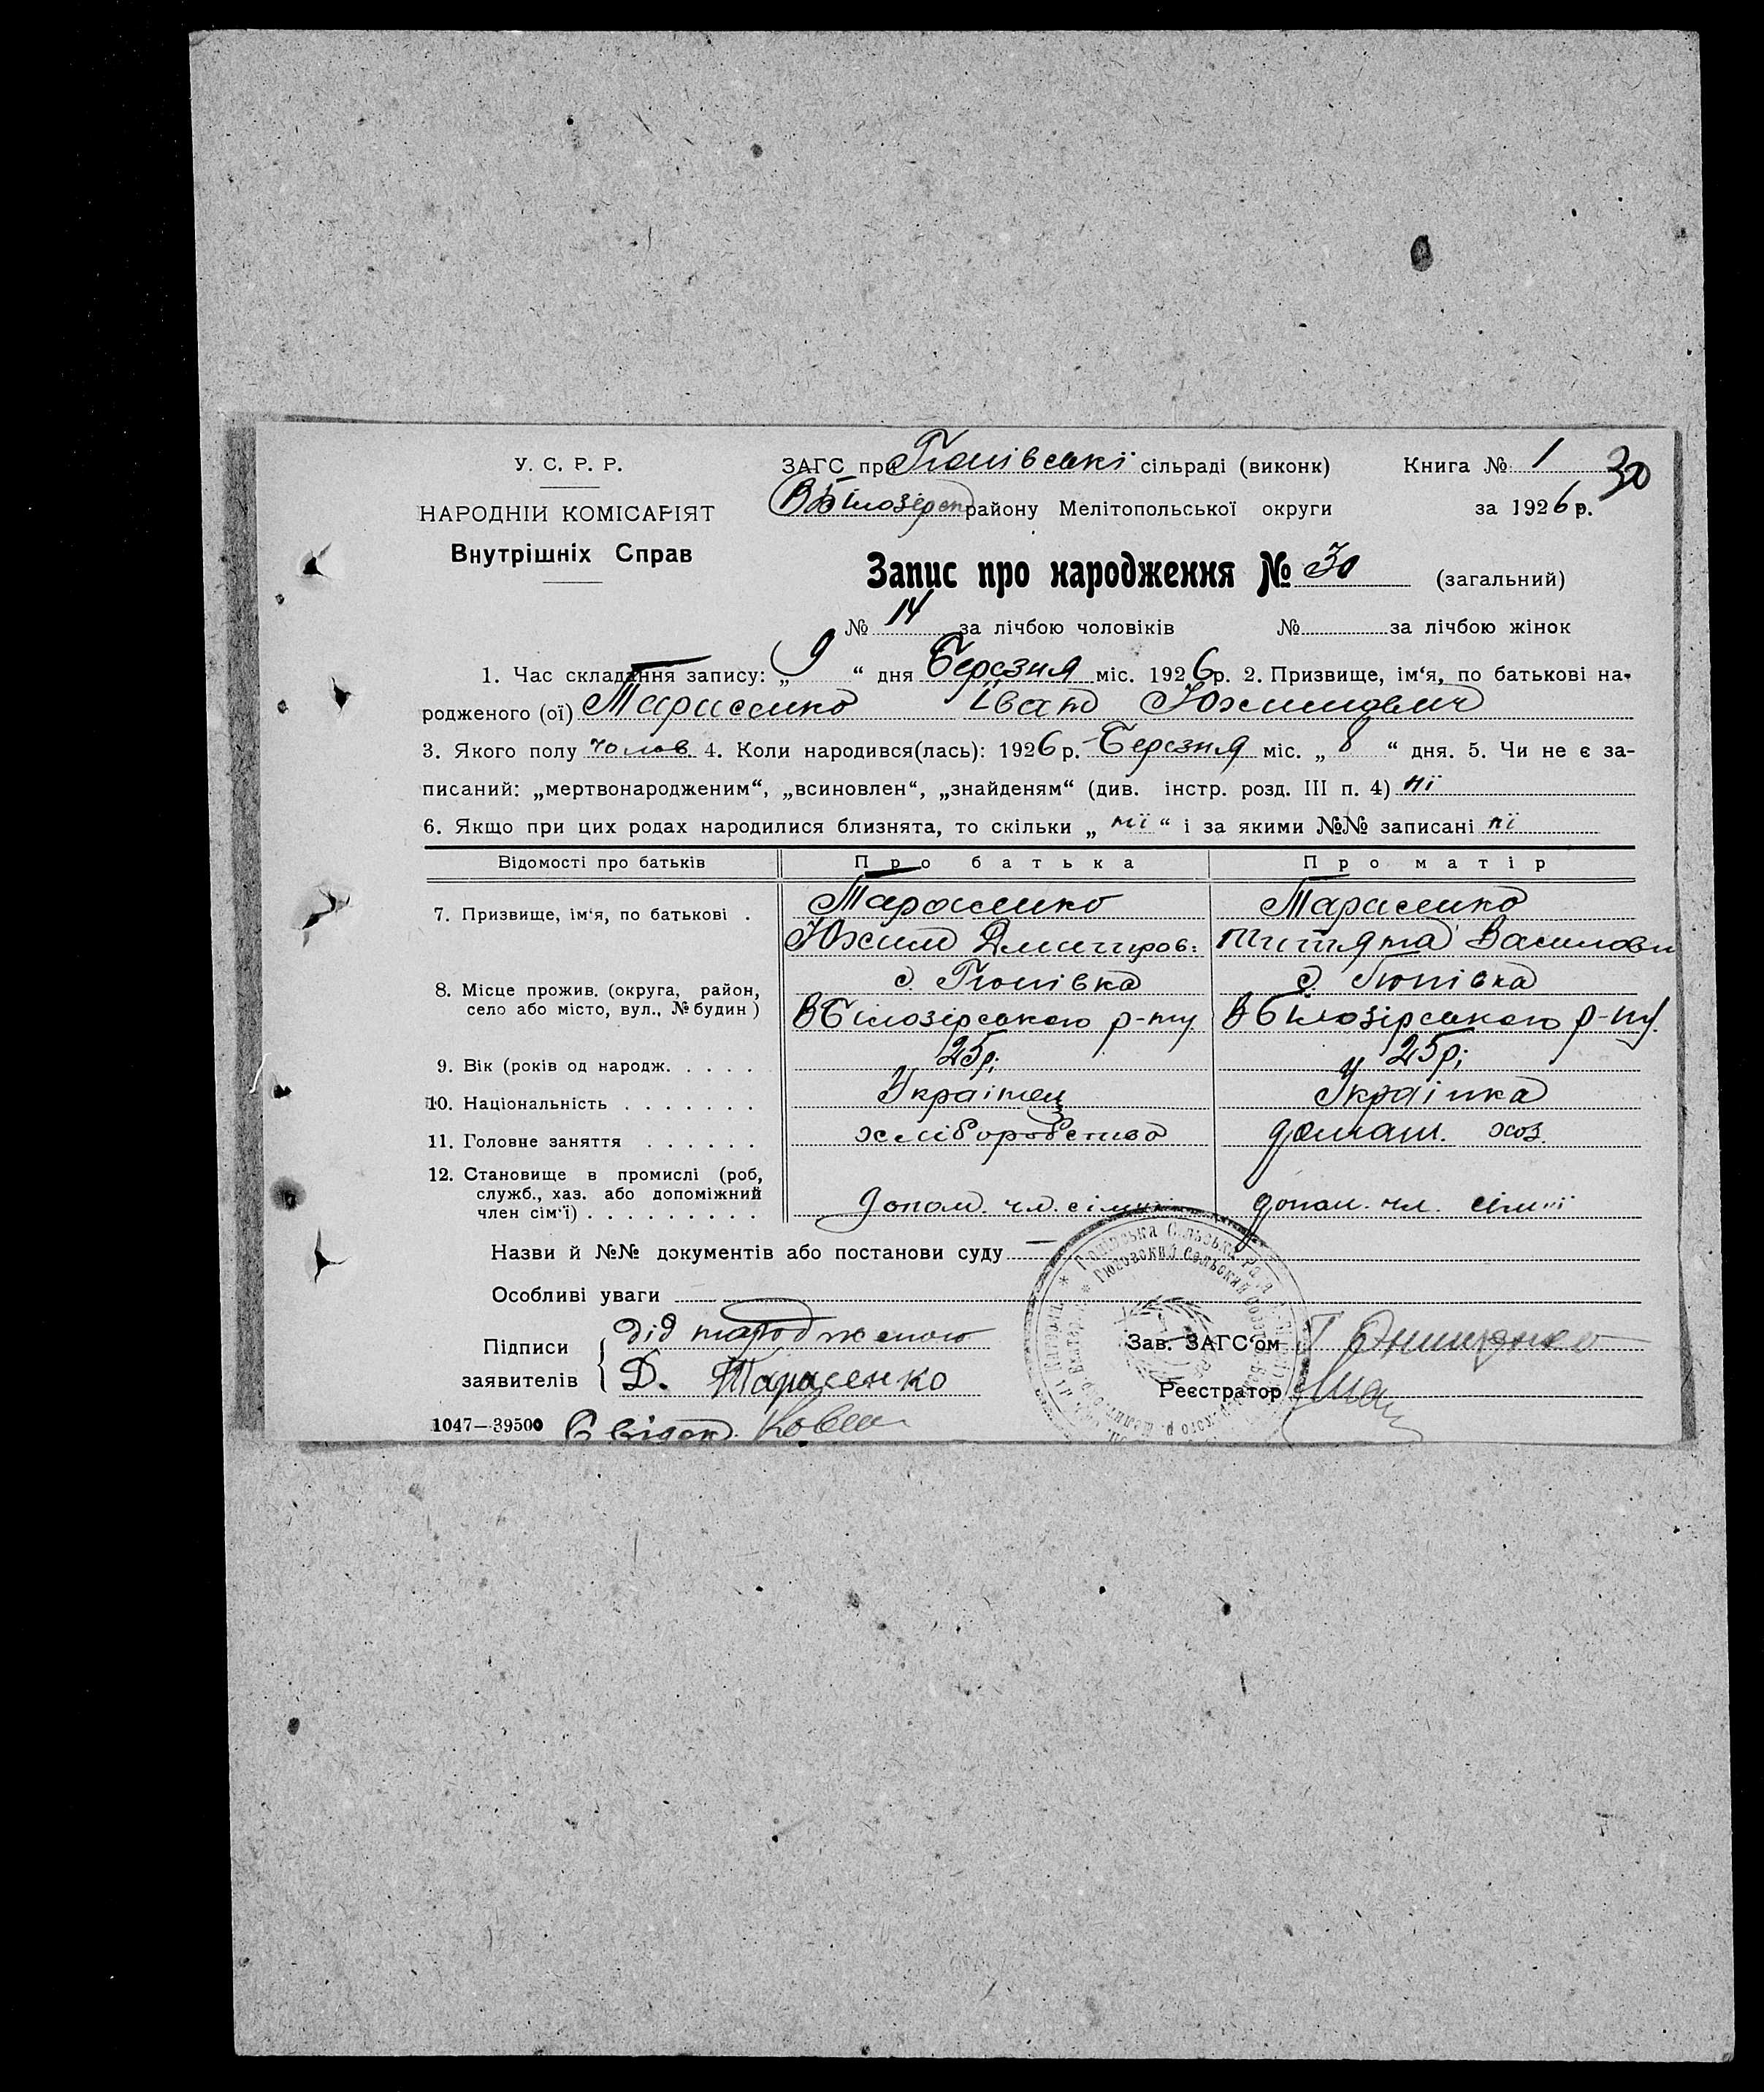 У. С. Р. Р.
НАРОДНІЙ КОМІСАРІЯТ
Внутрішніх Справ
ЗАГС при Гюнівські сільраді (виконк) Книга № 1 30
ВБілозірсь району Мелітопольської округи за 1926 р.
Запис про народження № 30 (загальний)
№ 14 за лічбою чоловіків № за лічбою жінок
1. Час складання запису: „ 9 “ дня Березня міс. 1926р. 2. Призвище, ім‘я, по батькові на-
родженого (ої) Тарасенко Іван Юхимович
3. Якого полу чолов. 4. Коли народився(лась): 1926 р. Березня міс. „ 8 “ дня. 5. Чи не є за-
писаний: „мертвонародженим“, „всиновлен“, „знайденям“ (див. інстр. розд. III п. 4) ні
6. Якщо при цих родах народилися близнята, то скільки „ ні “ і за якими №№ записані ні
Відомості про батьків Про батька Про матір
7. Призвище, ім‘я, по батькові . Тарасенко Тарасенко
Юхим Дмитров: Титяна Василовн
8. Місце прожив. (округа, район, с. Гюнівка с. Гюнівка
село або місто, вул., № будин ) ВБілозірського р-ну ВБілозірського р-ну.
9. Вік (років од народж. . . . . 25р; 25р;
10. Національність . . . . . . . Українец Українка
11. Головне заняття . . . . . . хліборобство домаш. хоз.
12. Становище в промислі (роб,
служб., хаз. або допоміжний
член сім‘ї) . . . . . . . . . допом. чл. сімиї допом. чл. сімиї
Назви й №№ документів або постанови суду —
Особливі уваги
Підписи дід народженого
заявителів Д. Тарасенко
Зав. ЗАГС‘ом Г Онищенко
Реєстратор
1047—39500